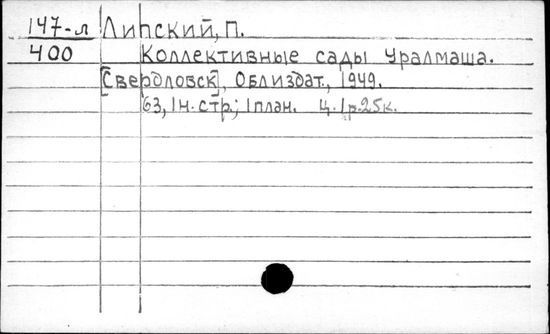 147-л Липский, П.
400 Коллективные сады Уралмаша.
[Свердловск], Облиздат., 1949.
63, 1н. стр.; 1 план. Ц. 1р.25к.